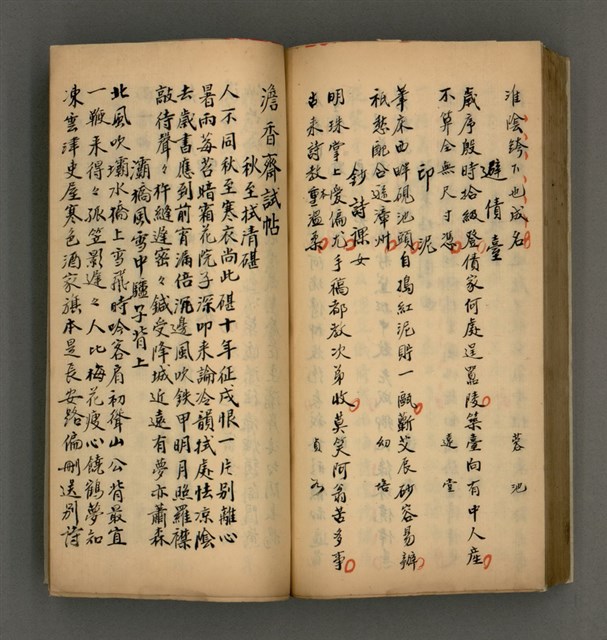 淮陰跨下也成名 蓉池
避債臺
歲序殷時拾級登債家何處逞囂陵築臺向有中人產
不算全無尺寸憑 遠堂
印泥
筆床西畔硯池頭自搗紅泥貯一甌蘄艾辰砂容易辦
祇愁配合遜漳州 幼培
鈔詩課女
明珠掌上愛偏尤手稿都教次弟收莫笑阿翁苦多事
古來詩教重溫柔
澹香齋試帖
秋至拭清碪
人不同秋至寒衣尚此碪十年征戍恨一片別離心
暑雨莓苔暗霜花院子深叩來論冷韻拭處怯涼陰
去歲書應到前宵漏倍沉邊風吹鐵甲明月照羅襟
敲待聲々杵縫遲密々鍼受降城近遠有夢亦蕭森
灞橋風雪中驢子背上
北風吹灞水橋上雪飛時吟客肩初聳山公背最宜
一鞭来得々孤笠影遲々人比梅花瘦心饒鶴夢知
凍雲浮吏屋寒色酒家旗本是長安路偏刪送別詩